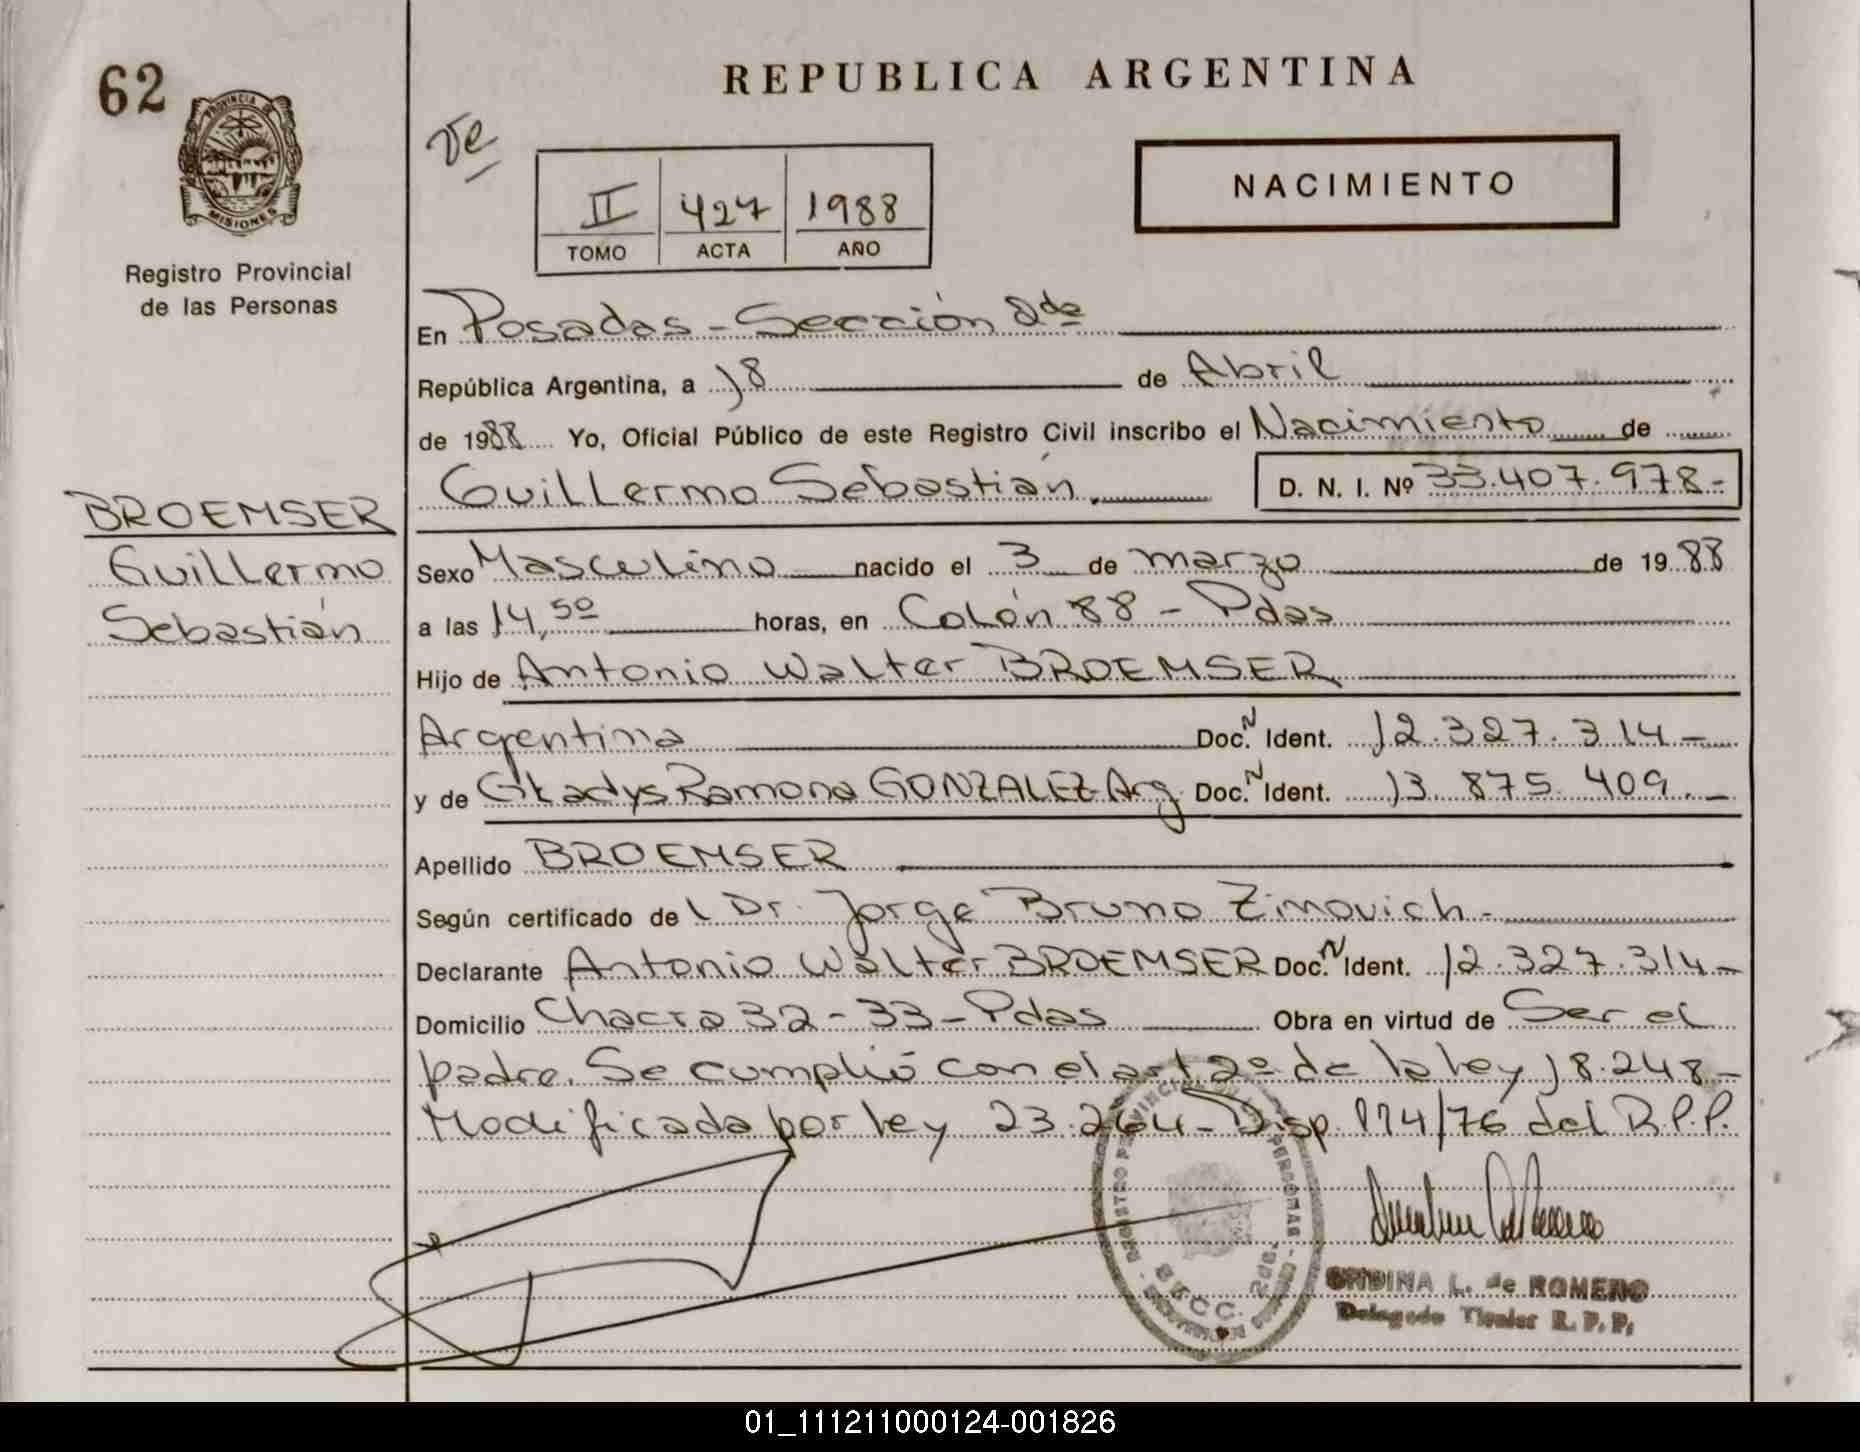 62
PROVINCIA DE
MISIONES
Registro Provincial
de las Personas
REPUBLICA ARGENTINA
NACIMIENTO
II 427 1988
TOMO ACTA AÑO
En Posadas - Sección 2da
República Argentina, a 18 de Abril
de 1988 Yo, Oficial Público de este Registro Civil inscribo el Nacimiento de
Guillermo Sebastián. D. N. I. Nº 33.407.978-
BROEMSER
Guillermo
Sebastián
Sexo Masculino nacido el 3 de marzo de 1988
a las 14,50 horas, en Colón 88 - Pdas
Hijo de Antonio Walter BROEMSER
Argentina Doc. N Ident. 12.327.314-
y de Gladys Ramona GONZALEZ Arg Doc. N Ident. 13.875.409.-
Apellido BROEMSER
Según certificado de l Dr. Jorge Bruno Zinovich-
Declarante Antonio Walter BROEMSER Doc. N Ident. 12.327.314-
Domicilio Chacra 32-33-Pdas Obra en virtud de Ser el
padre. Se cumplió con el art 2º de la ley 18.248-
Modificada por ley 23.264- Disp. 174/76 del R.P.P.
SECC. 2da.
L. de ROMERO
Delegado Titular R. P. P.
01_111211000124-001826